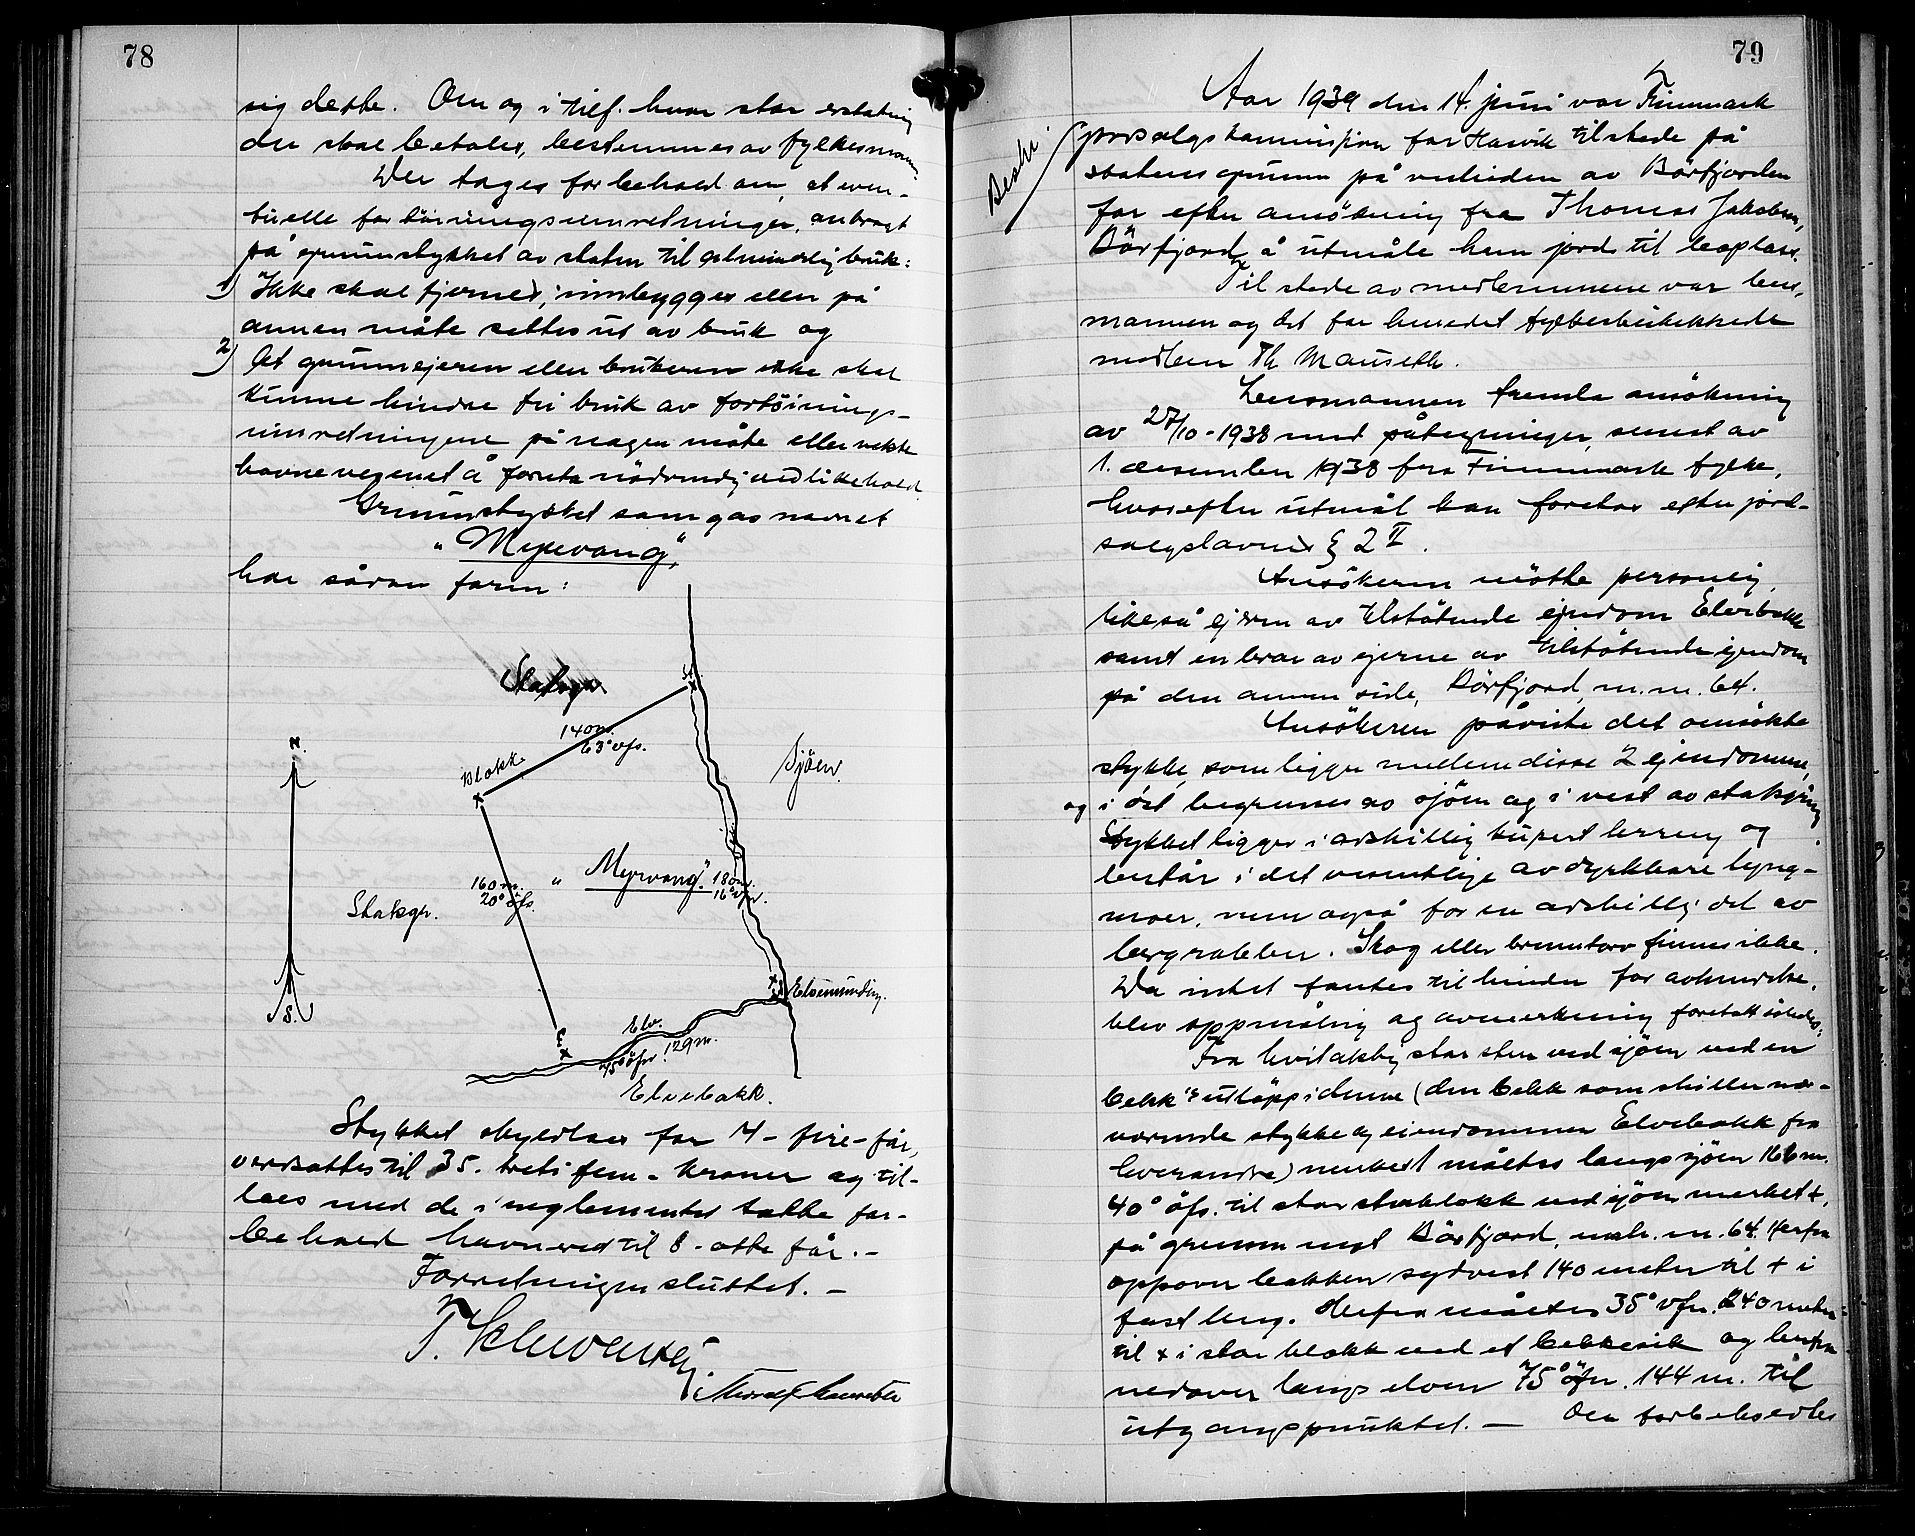 78
sig dette. Om og i tilf. hvor stor erstatning
der skal betales, bestemmes av fylkesmann
Der tages forbehold om, at even-
tuelle fortöiningsinnretninger, anbragt
på grunnstykket av staten til almindelig bruk:
1) Ikke skal fjernes, innbygges eller på
annen måte settes ut av bruk og
2) At grunneieren eller brukeren ikke skal
kunne hindre fri bruk av fortöinings-
innretningene på nogen måte eller nekte
havnevesenet å foreta nödvendig vedlikehold.
Grunnstykket som gas navnet
"Myrvang",
har sådan form:
Statsgr.
N.
Blokk
140 m.
63° vfs.
Sjöen.
Statsgr.
160 m.
20° öfs.
"Myrvang".
180 m.
16° vfn.
Elvemunding.
Elv.
75° öfn. 129 m.
S.
Elvebakk.
Stykket skyldlaes for 4 - fire - får,
verdsattes til 35 - tretifem - kroner og til-
laes med de i reglementet tatte for-
behold havneret til 8 - otte får. -
Forretningen sluttet. -
79
Beskr.
Aar 1939 den 14. juni var Finnmark
jordsalgskommisjon for Hasvik tilstede på
statens grunn på vestsiden av Börfjorden
for efter ansökning fra Thomas Jakobsen,
Börfjord å utmåle ham jord til boplass.
Tilstede av medlemmene var lens-
mannen og det for herredet fylkesbeskikkede
medlem Th Mauseth.
Lensmannen fremla ansökning
av 27/10 - 1938 med påtegninger, senest av
1. desember 1938 fra Finnmark fylke,
hvorefter utmål kan foretas efter jord-
salgslovens § 2 II.
Ansökeren mötte personlig,
likeså ejeren av tilstötende ejendom Elvebakk
samt en bror av ejerne av tilstötende ejendom
på den annen side, Börfjord, m. nr. 64.
Ansökeren påviste det ansökte
stykke, som ligger mellem disse 2 ejendomme,
og i öst begrenses av sjöen og i vest av statsgrunn
Stykket ligger i adskillig kupert terreng og
består i det vesentlige av dyrkbare lyng-
moer, men også for en adskillig del av
bergrabber. Skog eller brenntorv finnes ikke.
Da intet fantes til hinder for avhendelse,
blev oppmåling og avmerkning foretatt således:
Fra hvitaktig stor sten ved sjöen ved en
bekk's utlöp i denne (den bekk som skiller nær-
værende stykke og eiendommen Elvebakk fra
hverandre) merket måltes langs sjöen 166 m.
40° öfs. til stor stenblokk ved sjöen merket +,
på grensen mot Börfjord, matr. nr. 64. Herfra
oppover bakken sydvest 140 meter til + i
fast berg. Herfra måltes 35° vfn. 240 meter
til + i stor blokk ved et bekkesik og herfra
nedover langs elven 75° öfn. 144 m. til
utgangspunktet. - Der forbeholdes